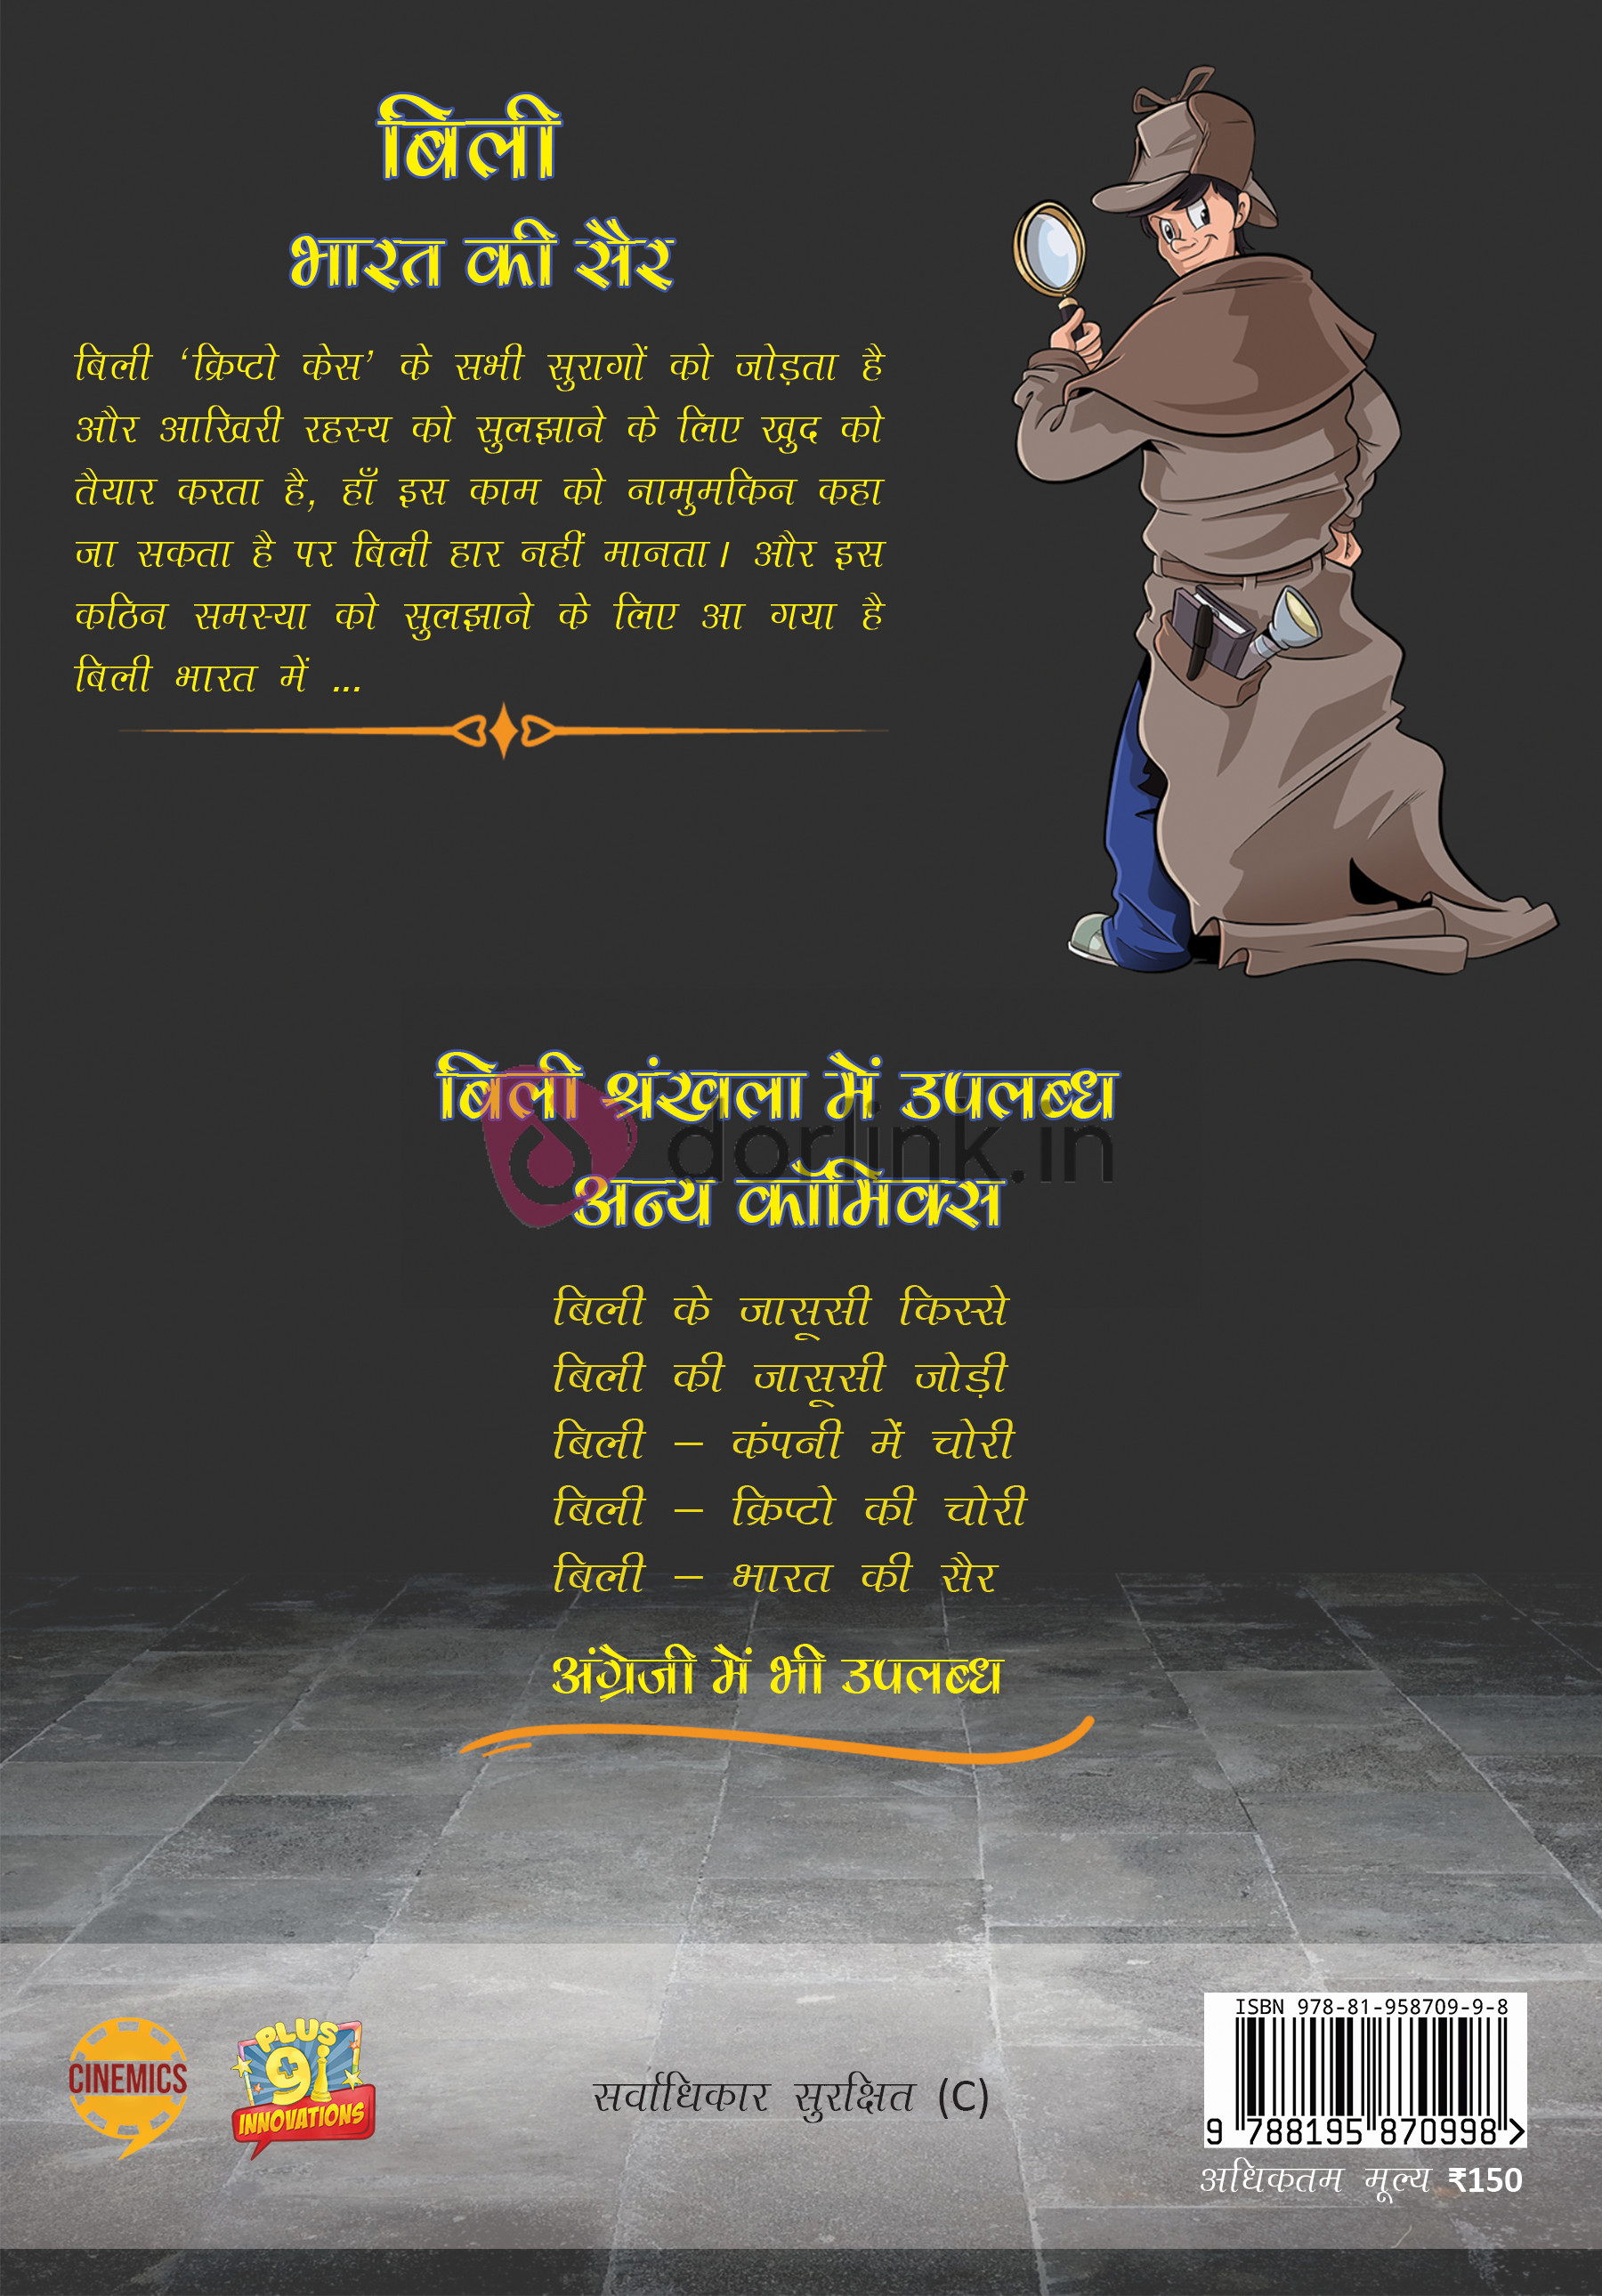 बिली
भारत की सैर
बिली ‘क्रिप्टो केस’ के सभी सुरागों को जोड़ता है
और आखिरी रहस्य को सुलझाने के लिए खुद को
तैयार करता है, हाँ इस काम को नामुमकिन कहा
जा सकता है पर बिली हार नहीं मानता। और इस
कठिन समस्या को सुलझाने के लिए आ गया है
बिली भारत में ...
बिली श्रंखला में उपलब्ध
dorlink.in
अन्य कॉमिक्स
बिली के जासूसी किस्से
बिली की जासूसी जोड़ी
बिली – कंपनी में चोरी
बिली – क्रिप्टो की चोरी
बिली – भारत की सैर
अंग्रेजी में भी उपलब्ध
CINEMICS
PLUS
+91
INNOVATIONS
सर्वाधिकार सुरक्षित (C)
ISBN 978-81-958709-9-8
9 788195 870998 >
अधिकतम मूल्य ₹150